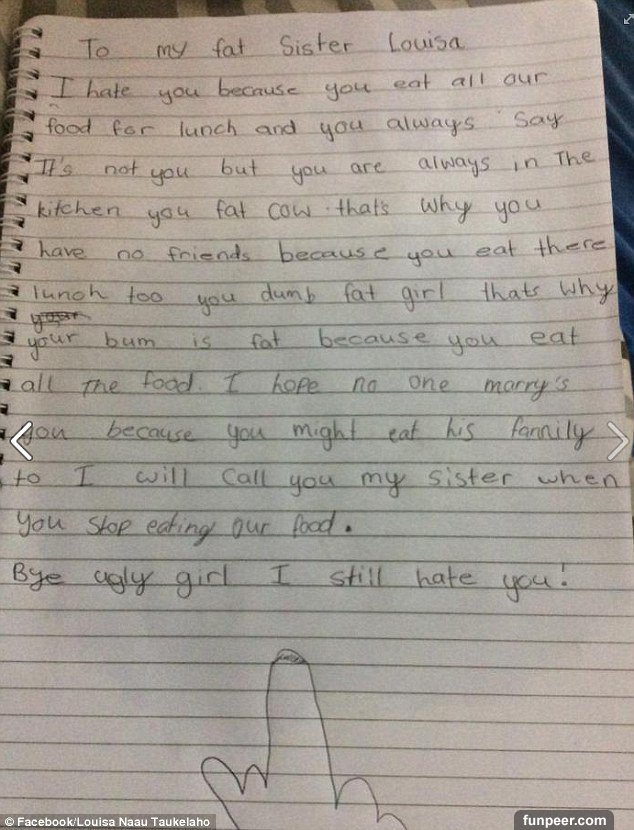 To my fat Sister Louisa
I hate you because you eat all our
food for lunch and you always say
It's not you but you are always in The
kitchen you fat cow. that's why you
have no friends because you eat there
lunch too you dumb fat girl thats why
your bum is fat because you eat
all the food. I hope no one marry's
you because you might eat his family
to I will call you my sister when
you stop eating our food.
Bye ugly girl I still hate you!
© Facebook/Louisa Naau Taukelaho
funpeer.com